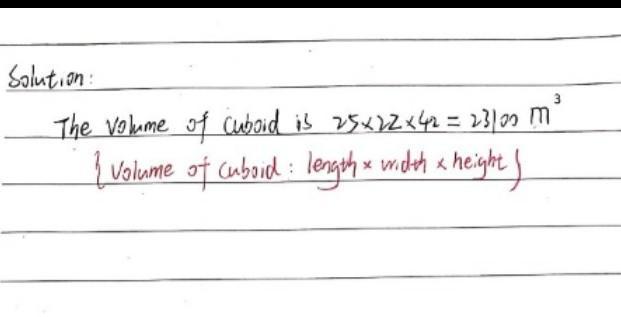 Solution:
The Volume of Cuboid is 25×22×42 = 23100 m³
{Volume of Cuboid: length × width × height}